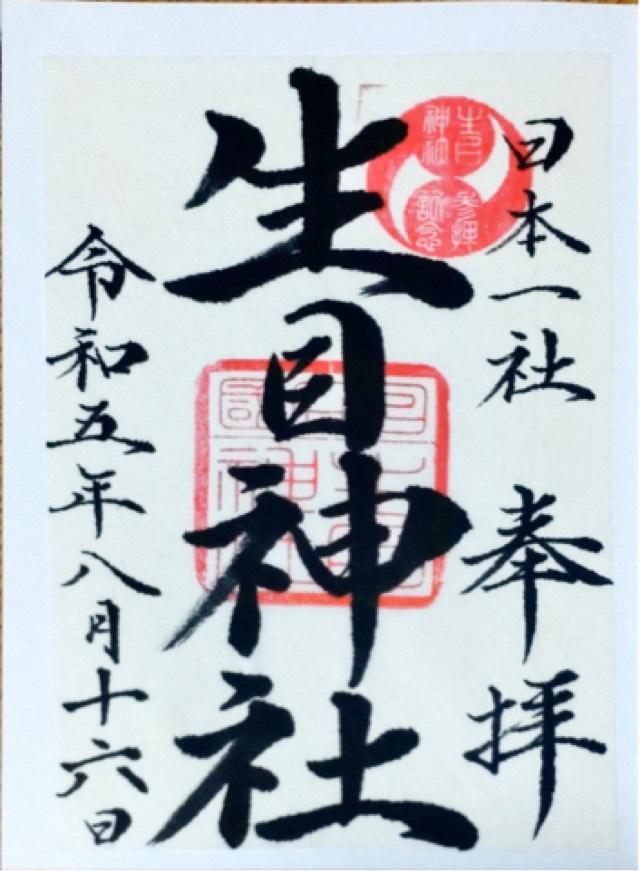 日本一社 奉拝
生目神社 参拝記念
生目神社
令和五年八月十六日